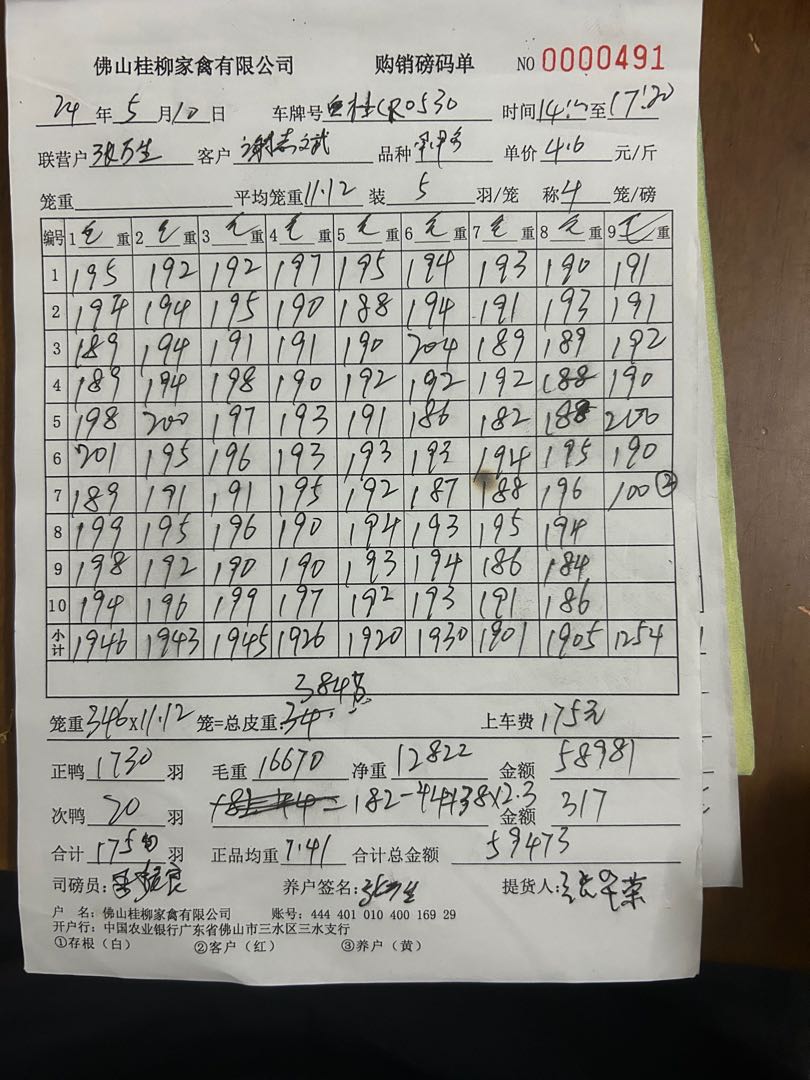 佛山桂柳家禽有限公司 购销磅码单 NO 0000491
24 年 5 月 10 日 车牌号 桂CR0530 时间 14: 至 17:20
联营户 张万生 客户 谢志斌 品种 单价 4.6 元/斤
笼重 平均笼重 11.12 装 5 羽/笼 称 4 笼/磅
编号 1 毛 重 2 毛 重 3 毛 重 4 毛 重 5 毛 重 6 毛 重 7 毛 重 8 毛 重 9 毛 重
1 195 192 192 197 195 194 193 190 191
2 194 194 195 190 188 194 191 193 191
3 189 194 191 191 190 204 189 189 192
4 189 194 198 190 192 192 192 188 190
5 198 200 197 193 191 186 182 188 200
6 201 195 196 193 193 193 194 195 190
7 189 191 191 195 192 187 188 196 100 ②
8 199 195 196 190 194 193 195 194
9 198 192 190 190 193 194 186 184
10 194 196 199 197 192 193 191 186
小计 1946 1943 1945 1926 1920 1930 1901 1905 1254
3848
笼重 346×11.12 笼=总皮重: 34 上车费 175元
正鸭 1730 羽 毛重 16670 净重 12822 金额 58981
次鸭 20 羽 182-44=138×2.3 金额 317
合计 1750 羽 正品均重 7.41 合计总金额 59473
司磅员: 养户签名: 张万生 提货人:
户 名: 佛山桂柳家禽有限公司 账号: 444 401 010 400 169 29
开户行: 中国农业银行广东省佛山市三水区三水支行
①存根（白） ②客户（红） ③养户（黄）